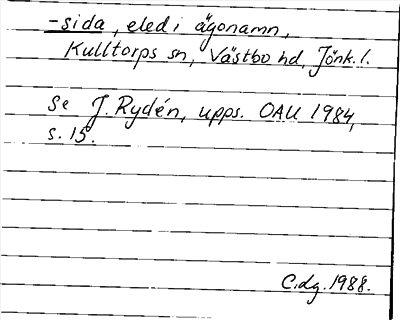 -sida, eled i ägonamn,
Kulltorps sn, Västbo hd, Jönk. l.
Se J. Rydén, upps. OAU 1984,
s. 15.
C.dg. 1988.